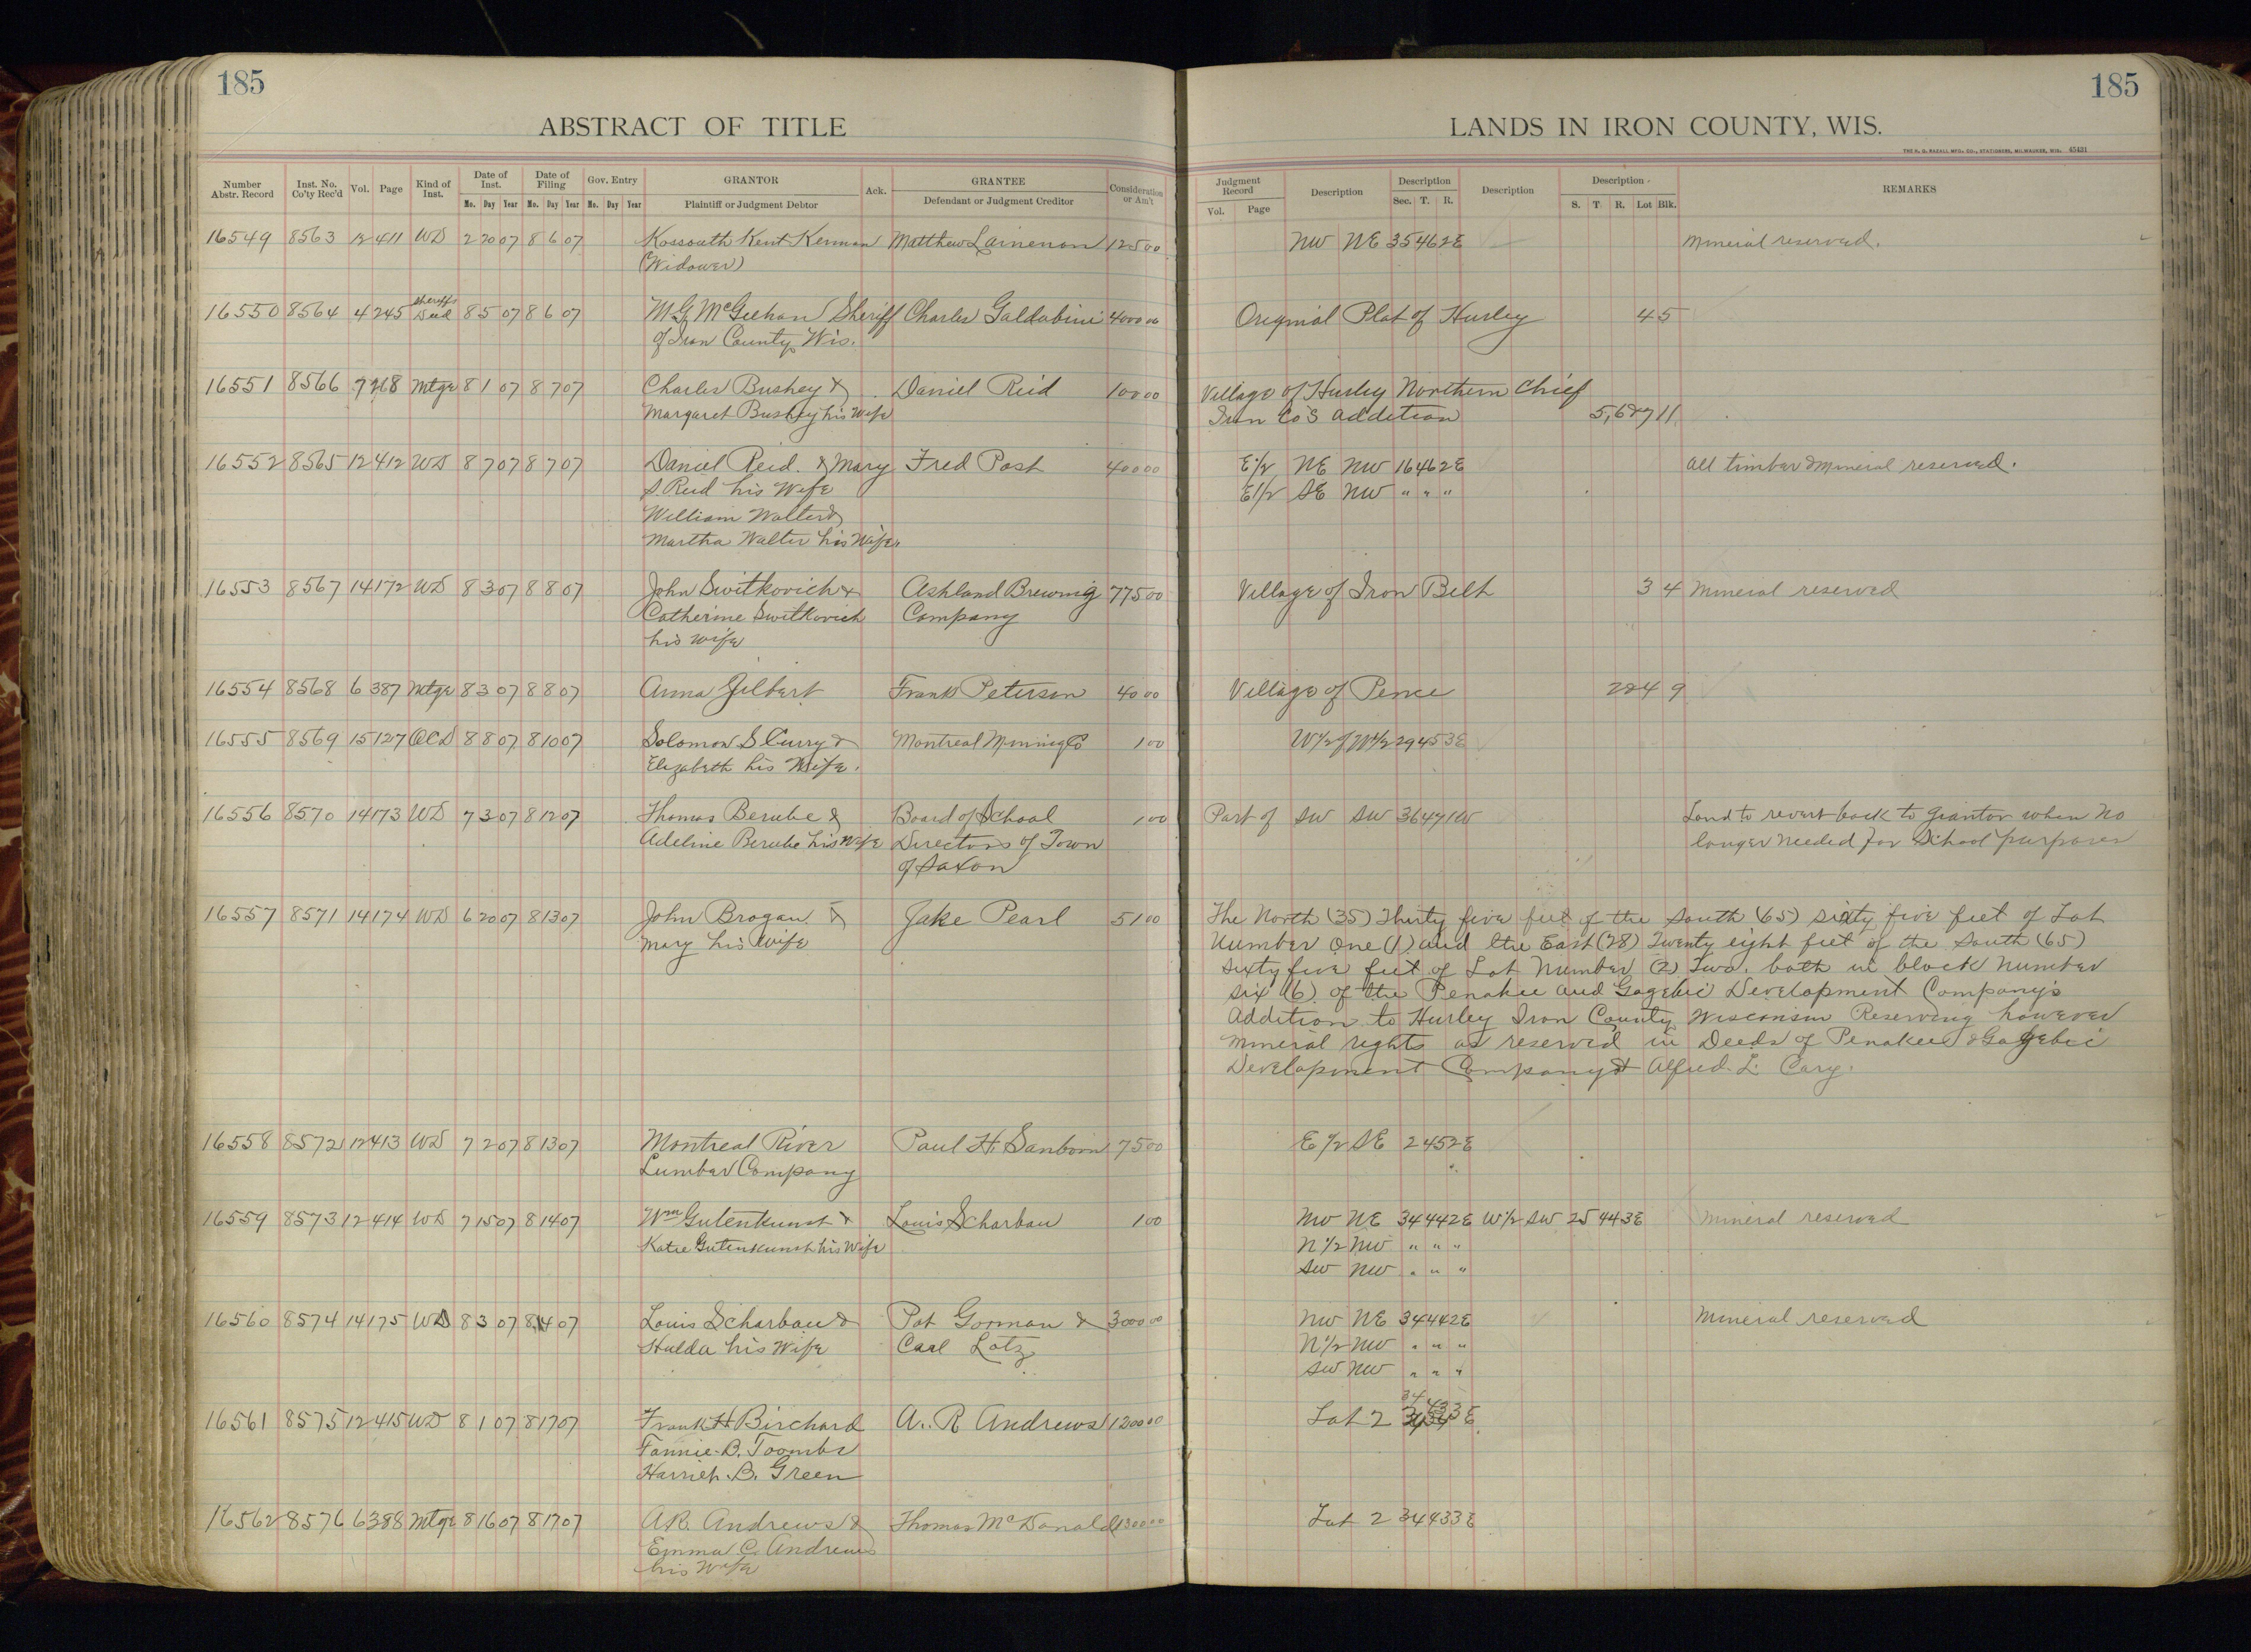 185
185
ABSTRACT OF TITLE
LANDS IN IRON COUNTY, WIS.
THE H. G. RAZALL MFG. CO., STATIONERS, MILWAUKEE, WIS. 45431
Number Abstr. Record | Inst. No. Co'ty Rec'd | Vol. | Page | Kind of Inst. | Date of Inst. Mo. Day Year | Date of Filing Mo. Day Year | Gov. Entry Mo. Day Year | GRANTOR Plaintiff or Judgment Debtor | Ack. | GRANTEE Defendant or Judgment Creditor | Consideration or Am't
Judgment Record Vol. Page | Description | Description Sec. T. R. | Description | Description S. T. R. Lot Blk. | REMARKS
16549 8563 12 411 WD 2 20 07 8 6 07 Kossouth Kent Kennan Matthew Lainenon 125 00 NW NE 35 46 2E Mineral reserved.
(Widower)
16550 8564 4 245 Sheriffs Deed 8 5 07 8 6 07 M.G. McGeehan Sheriff Charles Galdabini 4000 00 Original Plat of Hurley 4 5
of Iron County Wis.
16551 8566 7 268 Mtge 8 1 07 8 7 07 Charles Bushey & Daniel Reid 100 00 Village of Hurley Northern Chief
Margaret Bushey his Wife Iron Co's Addition 5,6&7 11
16552 8565 12 412 WD 8 7 07 8 7 07 Daniel Reid. & Mary Fred Post 400 00 E1/2 NE NW 16 46 2E All timber & Mineral reserved.
S. Reid his Wife E1/2 SE NW " " "
William Walter &
Martha Walter his Wife.
16553 8567 14 172 WD 8 3 07 8 8 07 John Switkovich & Ashland Brewing 775 00 Village of Iron Belt 3 4 Mineral reserved
Catherine Switkovich Company
his wife
16554 8568 6 387 Mtge 8 3 07 8 8 07 Anna Gilbert Frank Peterson 40 00 Village of Pence 2&4 9
16555 8569 15 127 QCD 8 8 07 8 10 07 Solomon S Curry & Montreal Mining Co 1 00 W1/2 of W1/2 29 45 3E
Elizabeth his Wife.
16556 8570 14 173 WD 7 3 07 8 12 07 Thomas Berube & Board of School 1 00 Part of SW SW 36 47 1W Land to revert back to Grantor when no
Adeline Berube his Wife Directors of Town longer needed for School purposes
of Saxon
16557 8571 14 174 WD 6 20 07 8 13 07 John Brogan & Jake Pearl 51 00 The North (35) Thirty five feet of the South (65) sixty five feet of Lot
Mary his Wife Number One (1) and the East (28) Twenty eight feet of the South (65)
sixty five feet of Lot Number (2) Two. both in block Number
six (6) of the Penokee and Gogebic Development Company's
Addition to Hurley Iron County Wisconsin Reserving however
mineral rights as reserved in Deeds of Penokee & Gogebic
Development Company & Alfred L. Cary.
16558 8572 12 413 WD 7 2 07 8 13 07 Montreal River Paul H. Sanborn 75 00 E 1/2 SE 2 45 2E
Lumber Company
16559 8573 12 414 WD 7 15 07 8 14 07 Wm Gutenkunst & Louis Scharbau 1 00 NW NE 34 44 2E W1/2 SW 25 44 3E Mineral reserved
Katie Gutenkunst his Wife N1/2 NW " " "
SW NW " " "
16560 8574 14 175 WD 8 3 07 8 14 07 Louis Scharbau & Pat Gorman & 3000 00 NW NE 34 44 2E Mineral reserved
Hulda his Wife Carl Lotz N1/2 NW " " "
SW NW " " "
16561 8575 12 415 WD 8 1 07 8 17 07 Frank H Birchard A. R Andrews 1200 00 Lot 2 34 43 3E
Fannie B. Toombs
Harriet B. Green
16562 8576 6 388 Mtge 8 16 07 8 17 07 A.R. Andrews & Thomas McDonald 1300 00 Lot 2 34 43 3E
Emma C. Andrews
his Wife